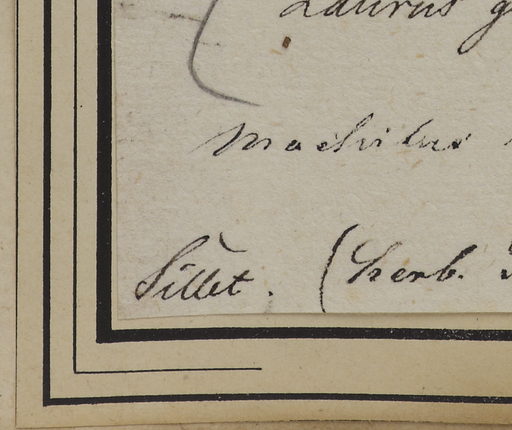 Laurus g
Machilus
Sillet. (herb.